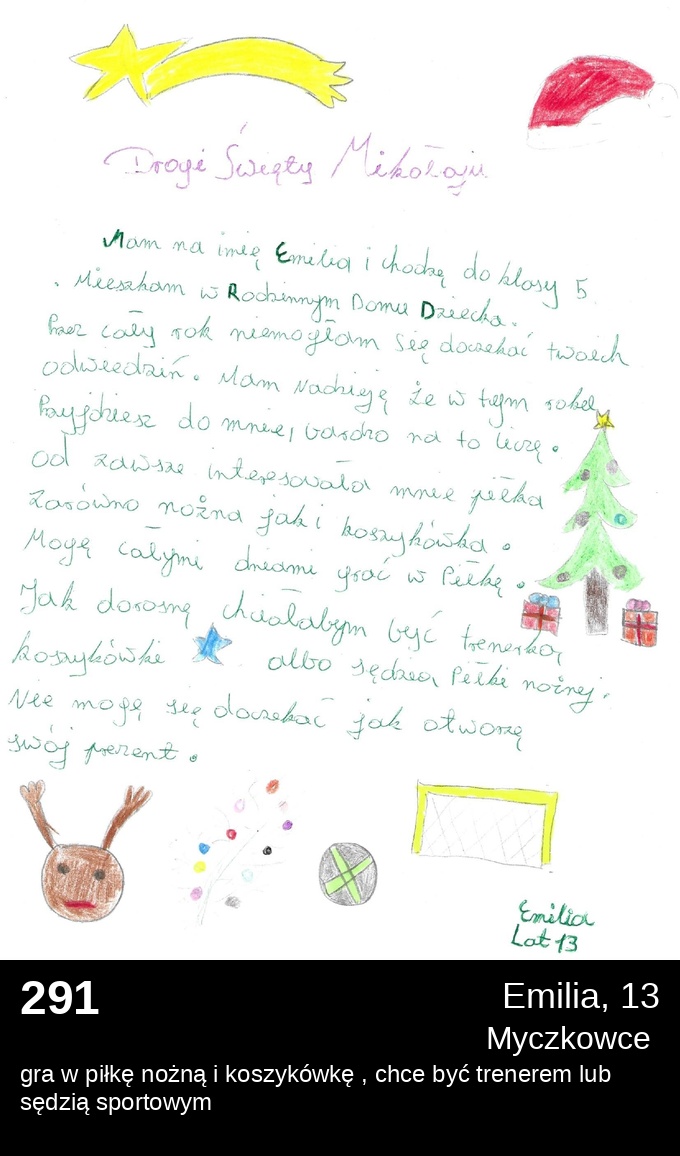 Drogi Święty Mikołaju
Mam na imię Emilia i chodzę do klasy 5
. Mieszkam w Rodzinnym Domu Dziecka.
Przez cały rok niemogłam się doczekać twoich
odwiedziń. Mam Nadzieję że w tym roku
Przyjdziesz do mnie, bardzo na to liczę.
od zawsze interesowała mnie piłka
Zarówno nożna jak i koszykówka.
Mogę całymi dniami grać w Piłkę.
Jak dorosnę chciałabym być trenerką
koszykówki albo sędzią Piłki nożnej.
Nie mogę się doczekać jak otworzę
swój prezent.
Emilia
Lat 13
291
Emilia, 13
Myczkowce
gra w piłkę nożną i koszykówkę , chce być trenerem lub
sędzią sportowym